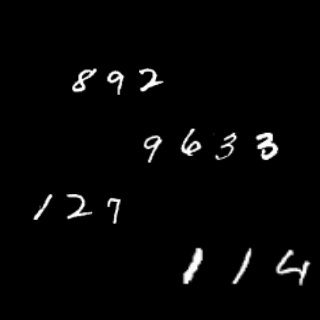 892
9633
127
114